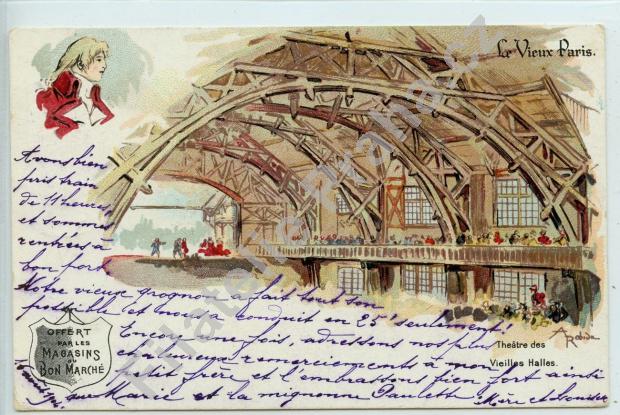 Le Vieux Paris.
Avons bien
pris train
de 11 heures
et sommes
rentrées à
bon port
notre vieux grognon a fait tout son
possible et nous a conduit en 25' seulement!
Encore une fois, adressons nos plus
chaleureux remerciements à mon
petit frère et l'embrassons bien fort ainsi
que Marie et la mignonne Paulette Mère et Louise
OFFERT
PAR LES
MAGASINS
DU
BON MARCHÉ
A Robida
Théâtre des
Vieilles Halles.
Filatelie-Praha.cz